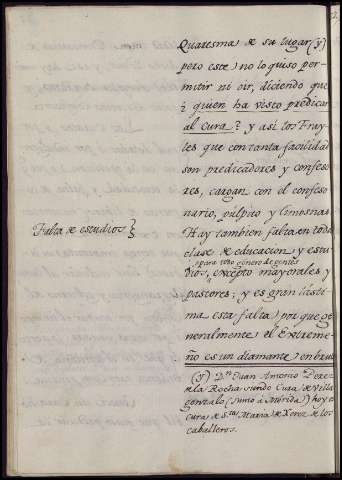 Quaresma de su lugar (y)
pero este) no lo quiso per-
mitir ni oir, diciendo que
¿quien ha visto predicar
al cura? y así los Fray-
les que con tanta facilidad
son predicadores y confeso
res, cargan con el confeso
nario, pulpito y limosnas
Falta de estudios
Hay tambien falta en toda
clase de educacion, y estu
para todo género de gentes
dios, excepto mayorales y
pastores; y es gran lásti-
ma esta falta) por que ge
neralmente el Extreme-
ño es un diamante en bru
(y) Dn. Juan Antonio Pere
de la Rocha siendo Cura de Villa
gonzalo (junto á Mérida) hoy e
cura de Sta. Maria de Xerez de los
caballeros.